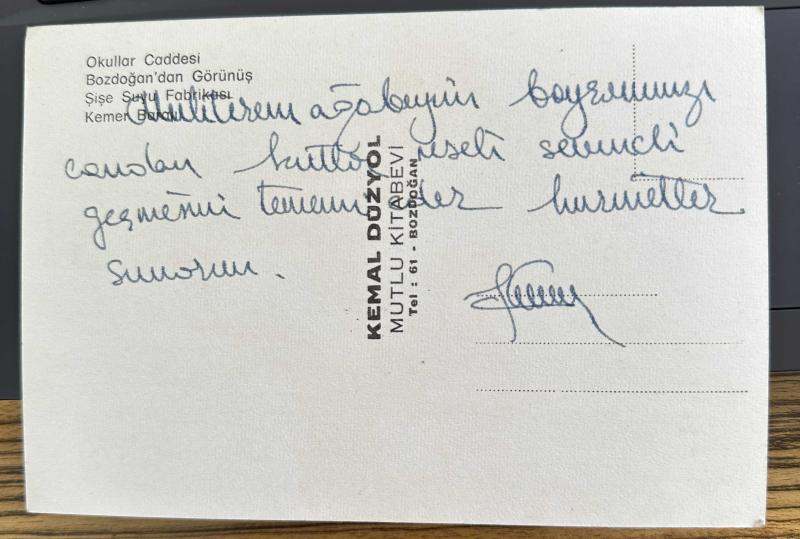 Okullar Caddesi
Bozdoğan'dan Görünüş
Şişe Suyu Fabrikası
Kemer Barajı
Muhterem ağabeyin bayramınızı
candan kutlar neşeli sevinçli
geçmesini temenni eder hürmetler
sunarım.
KEMAL DÜZYOL
MUTLU KİTABEVİ
Tel : 61 - BOZDOĞAN